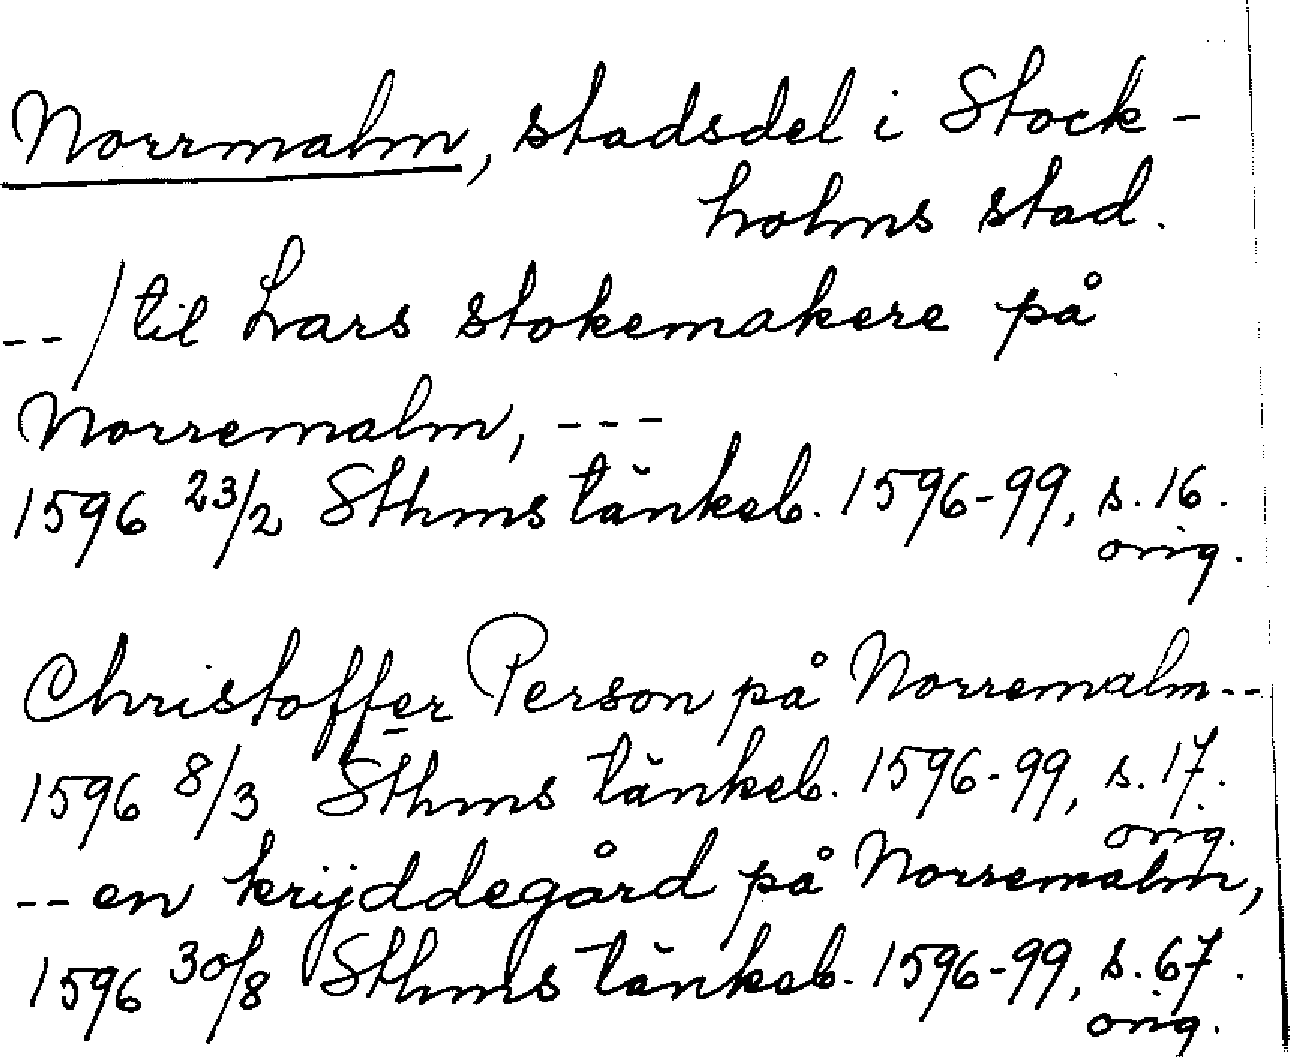 Norrmalm, stadsdel i Stock-
holms stad.
--/til Lars stokemakere på
Norremalm, ---
1596 23/2 Sthms tänkeb. 1596-99, s. 16.
orig.
Christoffer Person på Norremalm--
1596 8/3 Sthms tänkeb. 1596-99, s. 17.
orig.
--en krÿddegård på Norremalm,
1596 30/8 Sthms tänkeb. 1596-99, s. 67.
orig.